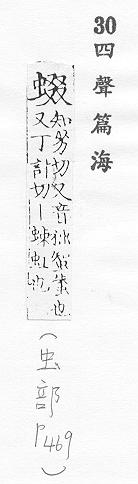 30四聲篇海
蝃
知劣切又音 也
又丁計切丨蝀虹也
(虫部P469)